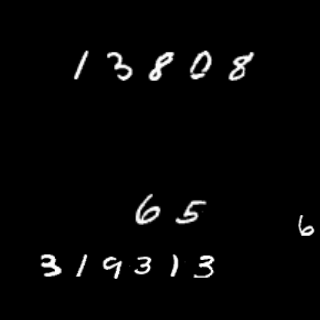 13808
65
6
319313